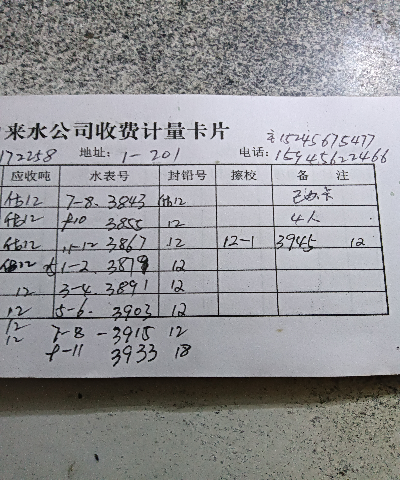 来水公司收费计量卡片
主15245675477
172258 地址: 1-201 电话: 15945622466
应收吨 水表号 封铅号 擦校 备 注
估12 7-8. 3843 估12 已办卡
估12 9-10 3855 12 4人
估12 11-12 3867 12 12-1 3945 12
12 1-2. 3879 12
12 3-4. 3891 12
12 5-6. 3903 12
12 7-8 - 3915 12
12 9-11 3933 18